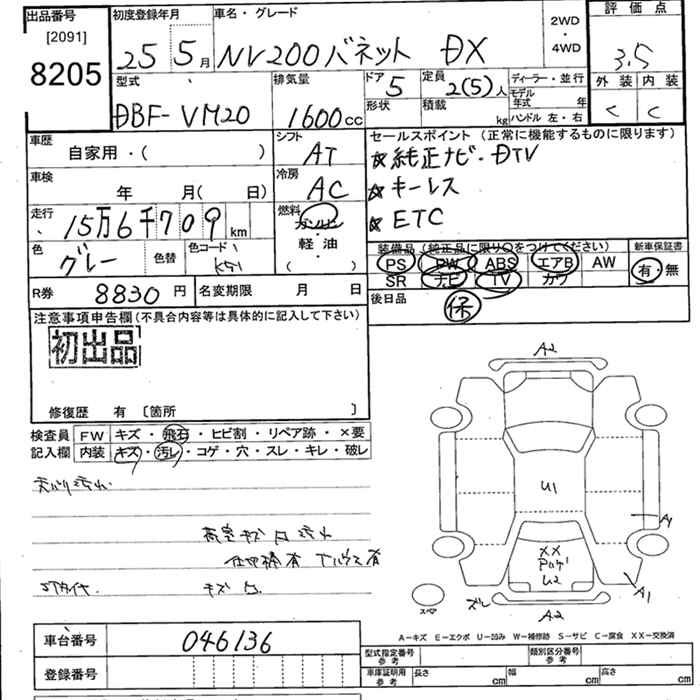 出品番号
[2091]
8205
初度登録年月
25 5月
車名・グレード
NV200バネット DX
2WD
・
4WD
評価点
3.5
外装 内装
C C
型式
DBF-VM20
排気量
1600cc
ドア 5
形状
定員 2(5)人
積載 kg
ディーラー・並行
モデル年式 年
ハンドル 左・右
車歴
自家用・( )
シフト
AT
車検
年 月( 日)
冷房
AC
走行
15万6千709km
燃料
ガソリン
・
軽油
( )
色
グレー
色替
色コード
K51
セールスポイント (正常に機能するものに限ります)
☆純正ナビ・DTV
☆キーレス
☆ETC
装備品 (純正品に限り○をつけてください)
PS PW ABS エアB AW
SR ナビ TV カワ
新車保証書
有・無
R券 8830円
名変期限 月 日
後日品
保
注意事項申告欄(不具合内容等は具体的に記入して下さい)
初出品
修復歴 有 〔箇所 〕
検査員
記入欄
FW キズ・飛石・ヒビ割・リペア跡・×要
内装 キズ・汚レ・コゲ・穴・スレ・キレ・破レ
天バリ汚れ
荷室キズ凹汚れ
キズ凹
A2
U1
A1
XX
U2
A1
ズレ
A2
スペア
A－キズ E－エクボ U－凹み W－補修跡 S－サビ C－腐食 XX－交換済
車台番号 046136
登録番号
型式指定番号
参考
類別区分番号
参考
車庫証明用
参考
長さ cm
幅 cm
高さ cm